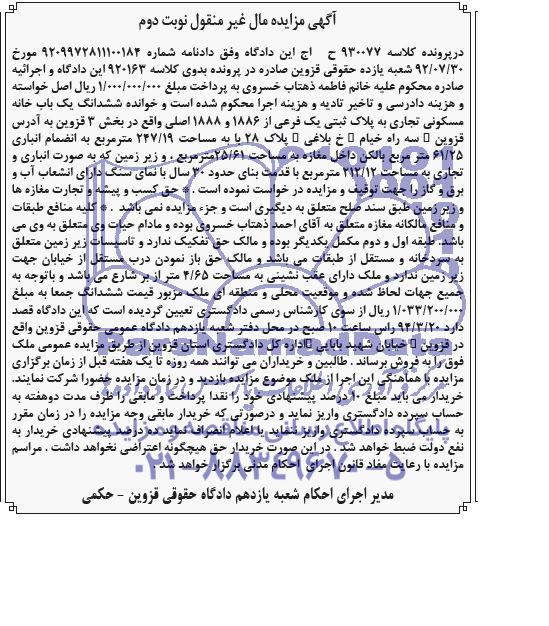 آگهی مزایده مال غیر منقول نوبت دوم
درپرونده کلاسه ۹۳۰۰۷۷ ح اج این دادگاه وفق دادنامه شماره ۹۲۰۹۹۷۲۸۱۱۱۰۰۱۸۴ مورخ
۹۲/۰۷/۳۰ شعبه یازده حقوقی قزوین صادره در پرونده بدوی کلاسه ۹۲۰۱۶۳ این دادگاه و اجرائیه
صادره محکوم علیه خانم فاطمه ذهتاب خسروی به پرداخت مبلغ ۱/۰۰۰/۰۰۰/۰۰۰ ریال اصل خواسته
و هزینه دادرسی و تاخیر تادیه و هزینه اجرا محکوم شده است و خوانده ششدانگ یک باب خانه
مسکونی تجاری به پلاک ثبتی یک فرعی از ۱۸۸۶ و ۱۸۸۸ اصلی واقع در بخش ۳ قزوین به آدرس
قزوین سه راه خیام خ بلاغی پلاک ۲۸ با به مساحت ۲۴۷/۱۹ مترمربع به انضمام انباری
۶۱/۲۵ متر مربع بالکن داخل مغازه به مساحت ۲۵/۶۱مترمربع . و زیر زمین که به صورت انباری و
تجاری به مساحت ۲۱۲/۱۲ مترمربع با قدمت بنای حدود ۳۰ سال با نمای سنگ دارای انشعاب آب و
برق و گاز را جهت توقیف و مزایده در خواست نموده است . * حق کسب و پیشه و تجارت مغازه ها
و زیر زمین طبق سند صلح متعلق به دیگری است و جزء مزایده نمی باشد . * کلیه منافع طبقات
و منافع مالکانه مغازه متعلق به آقای احمد ذهتاب خسروی بوده و مادام حیات وی متعلق به وی می
باشد. طبقه اول و دوم مکمل یکدیگر بوده و مالک حق تفکیک ندارد و تاسیسات زیر زمین متعلق
به سردخانه و مستقل از طبقات می باشد و مالک حق باز نمودن درب مستقل از خیابان جهت
زیر زمین ندارد و ملک دارای عقب نشینی به مساحت ۴/۶۵ متر از بر شارع می باشد و باتوجه به
جمیع جهات لحاظ شده و موقعیت محلی و منطقه ای ملک مزبور قیمت ششدانگ جمعا به مبلغ
ریال از سوی کارشناس رسمی دادگستری تعیین گردیده است که این دادگاه قصد
دارد ۹۴/۳/۲۰ راس ساعت ۱۰ صبح در محل دفتر شعبه یازدهم دادگاه عمومی حقوقی قزوین واقع
در قزوین خیابان شهید بابایی اداره کل دادگستری استان قزوین از طریق مزایده عمومی ملک
فوق را به فروش برساند . طالبین و خریداران می توانند همه روزه تا یک هفته قبل از زمان برگزاری
مزایده با هماهنگی این اجرا از ملک موضوع مزایده بازدید و در زمان مزایده حضورا شرکت نمایند.
خریدار می باید مبلغ ۱۰ درصد پیشنهادی خود را نقدا پرداخت و مابقی را ظرف مدت دوهفته به
حساب سپرده دادگستری واریز نماید و درصورتی که خریدار مابقی وجه مزایده را در زمان مقرر
به حساب سپرده دادگستری واریز ننماید یا اعلام انصراف نماید ده درصد پیشنهادی خریدار به
نفع دولت ضبط خواهد شد . در این صورت خریدار حق هیچگونه اعتراضی نخواهد داشت . مراسم
مزایده با رعایت مفاد قانون اجرای احکام مدنی برگزار خواهد شد
مدیر اجرای احکام شعبه یازدهم دادگاه حقوقی قزوین - حکمی
۰۲۱-۸۸۳۴۹۶۷۰-۵